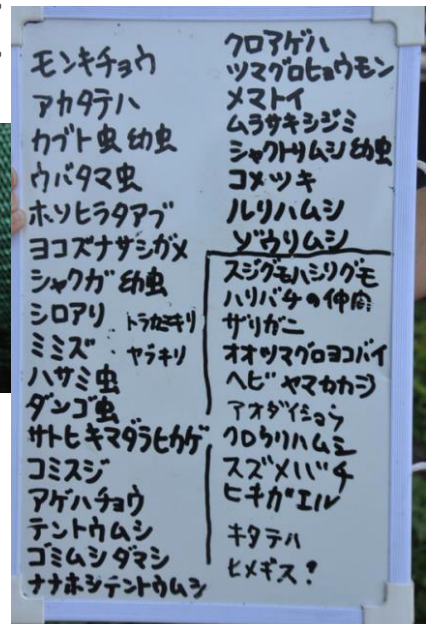 モンキチョウ
アカタテハ
カブト虫 幼虫
ウバタマ虫
ホソヒラタアブ
ヨコズナサシガメ
シャクガ 幼虫
シロアリ トラカミキリ
ミミズ ・ヤブキリ
ハサミ虫
ダンゴ虫
サトヒキマダラヒカゲ
コミスジ
アゲハチョウ
テントウムシ
ゴミムシダマシ
ナナホシテントウムシ
クロアゲハ
ツマグロヒョウモン
メマトイ
ムラサキシジミ
シャクトリムシ 幼虫
コメツキ
ルリハムシ
ゾウリムシ
スジグモハシリグモ
ハリバチの仲間
ザリガニ
オオツマグロヨコバイ
ヘビ ヤマカカシ
アオダイショウ
クロウリハムシ
スズメバチ
ヒキガエル
キタテハ
ヒメギス?